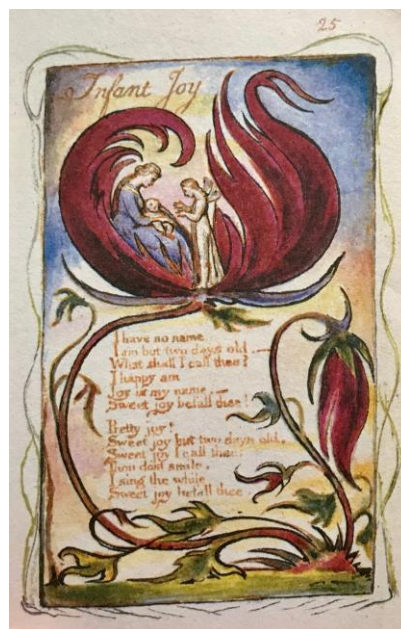 25
Infant Joy
I have no name
I am but two days old.—
What shall I call thee?
I happy am
Joy is my name,—
Sweet joy befall thee!
Pretty joy!
Sweet joy but two days old.
Sweet joy I call thee:
Thou dost smile.
I sing the while
Sweet joy befall thee